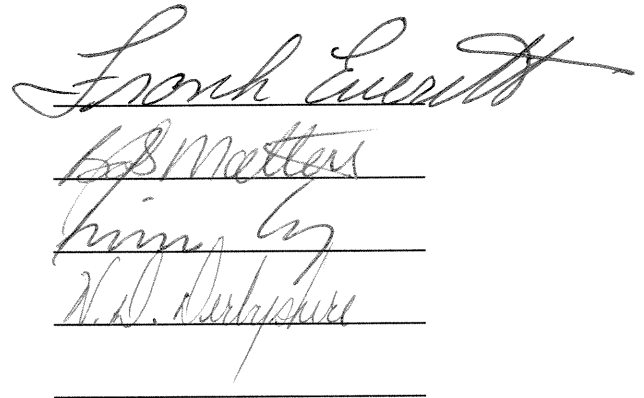 Frank Everitt
Bob Matters
N. D. Derbyshire